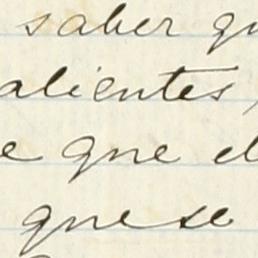 saber qu
alientes,
e que el
que se